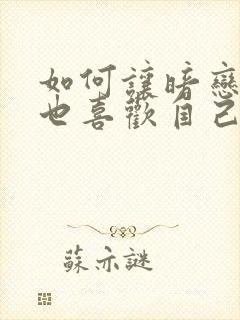 如何讓暗戀
也喜歡自己
蘇亦謎